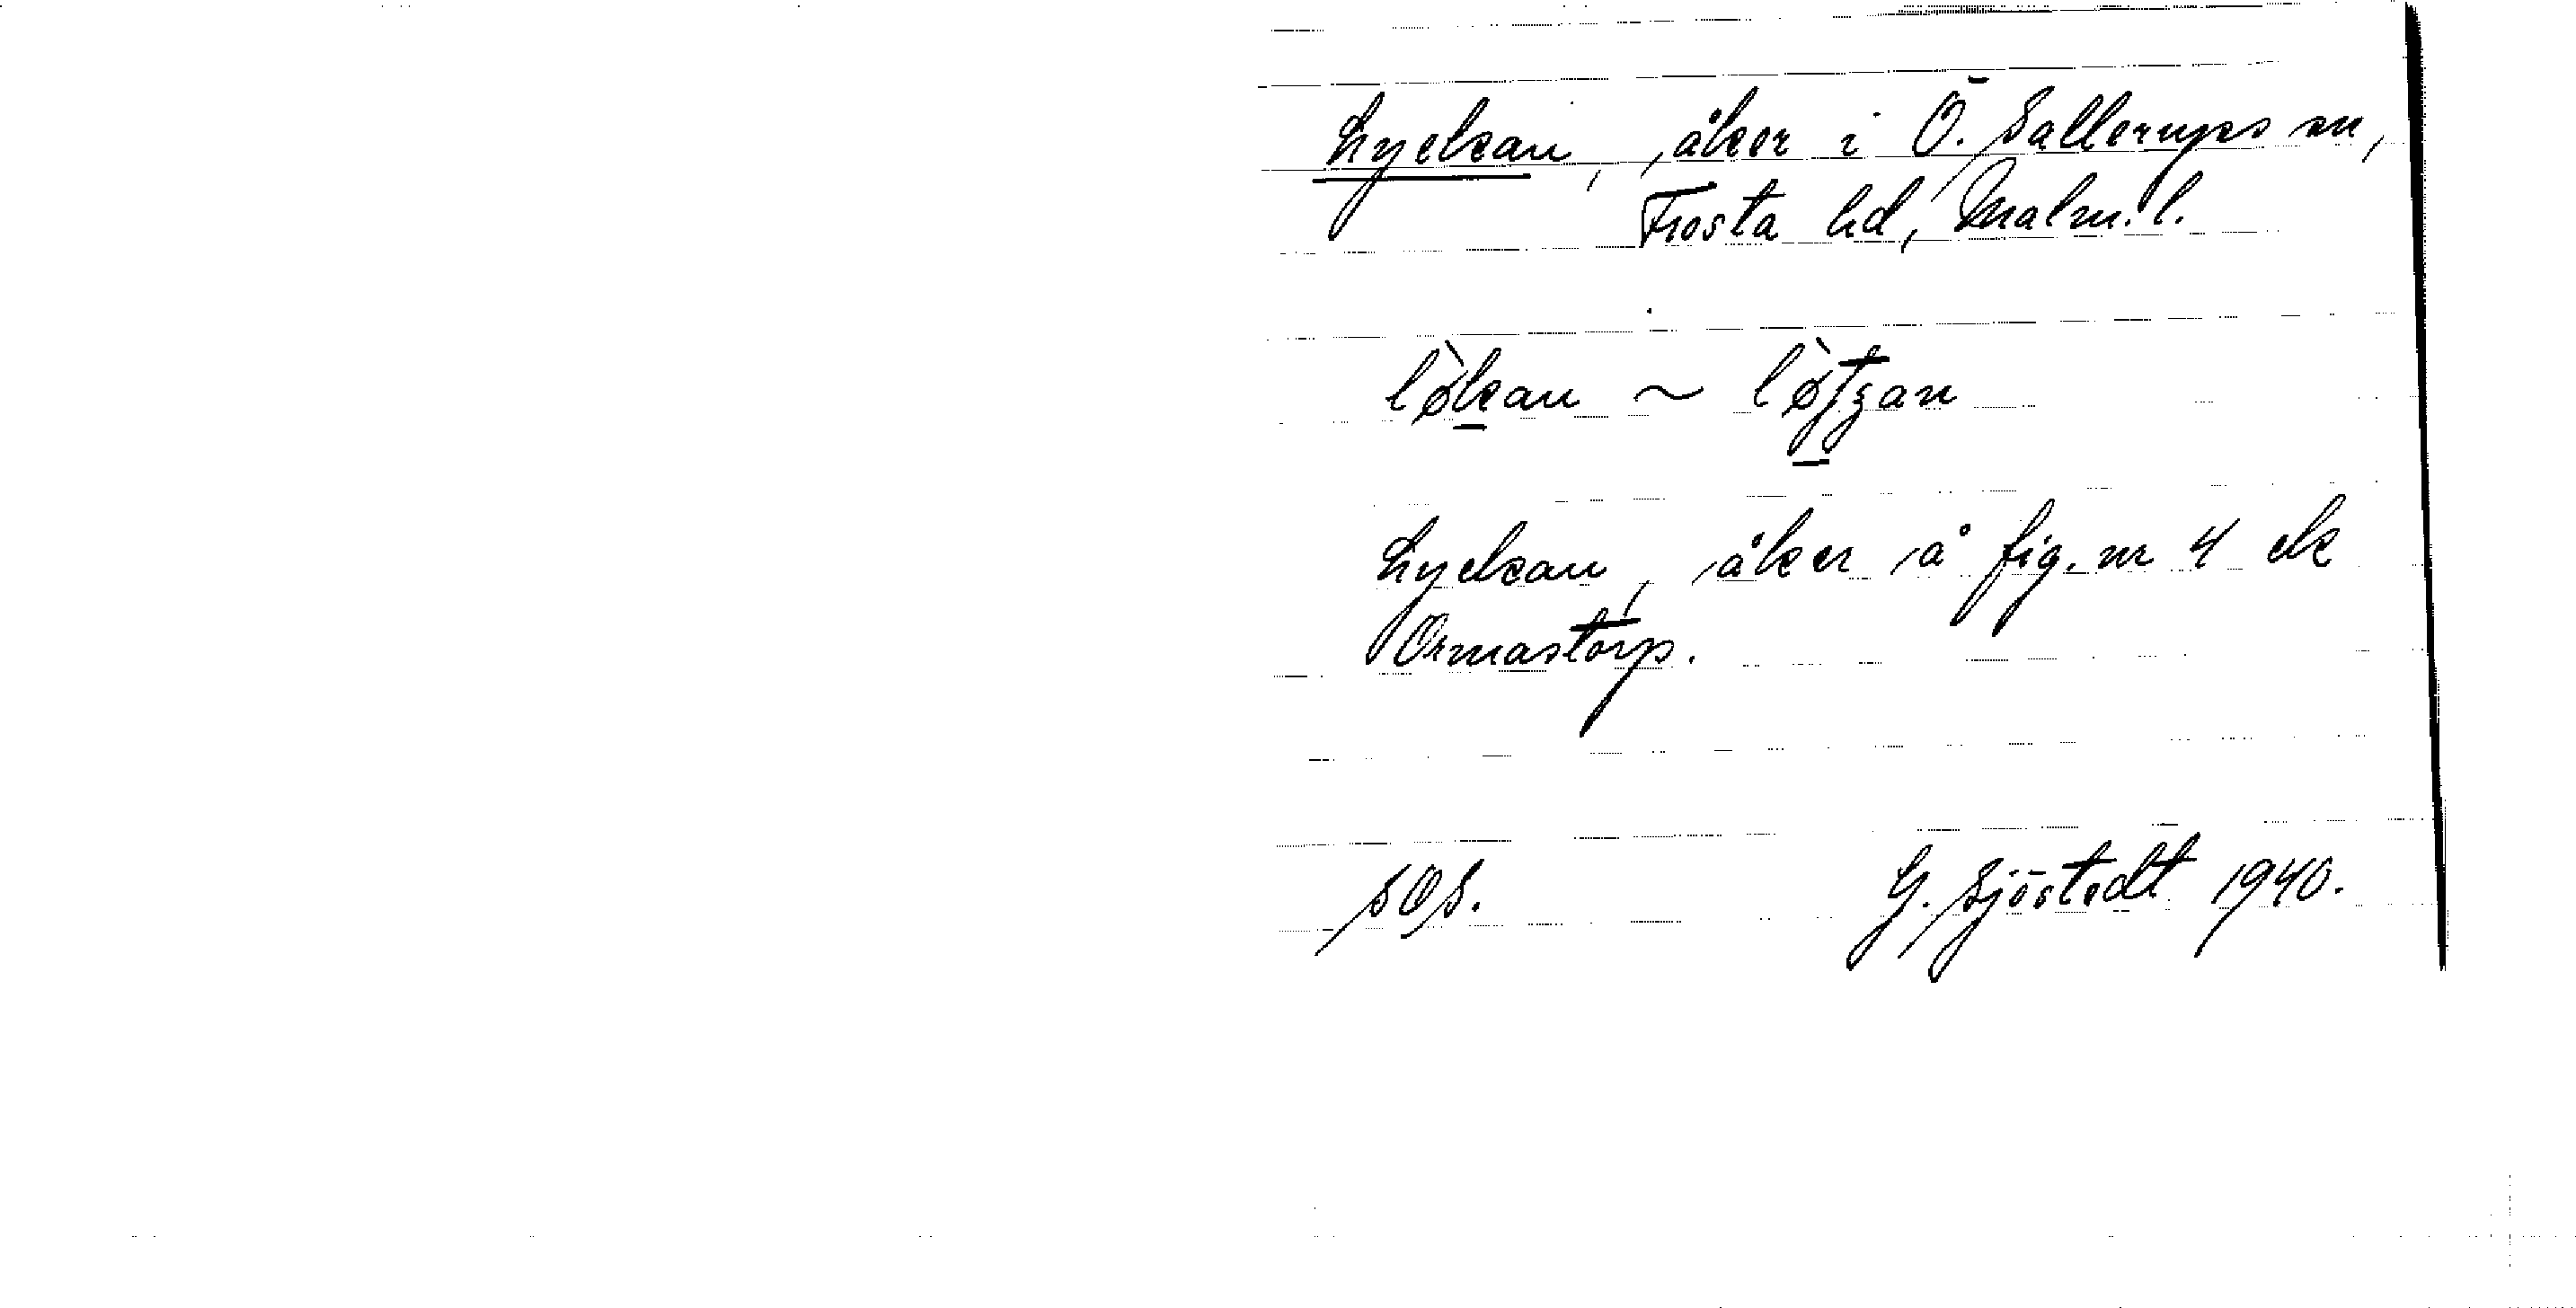 Lyckan, åker i Ö. Sallerups sn,
Frosta hd, Malm. l.
lø̀kan ~ lø̀tʒan
Lyckan, åker å fig. nr 4 ek
Ormastorp.
SOS.
G. Sjöstedt 1940.